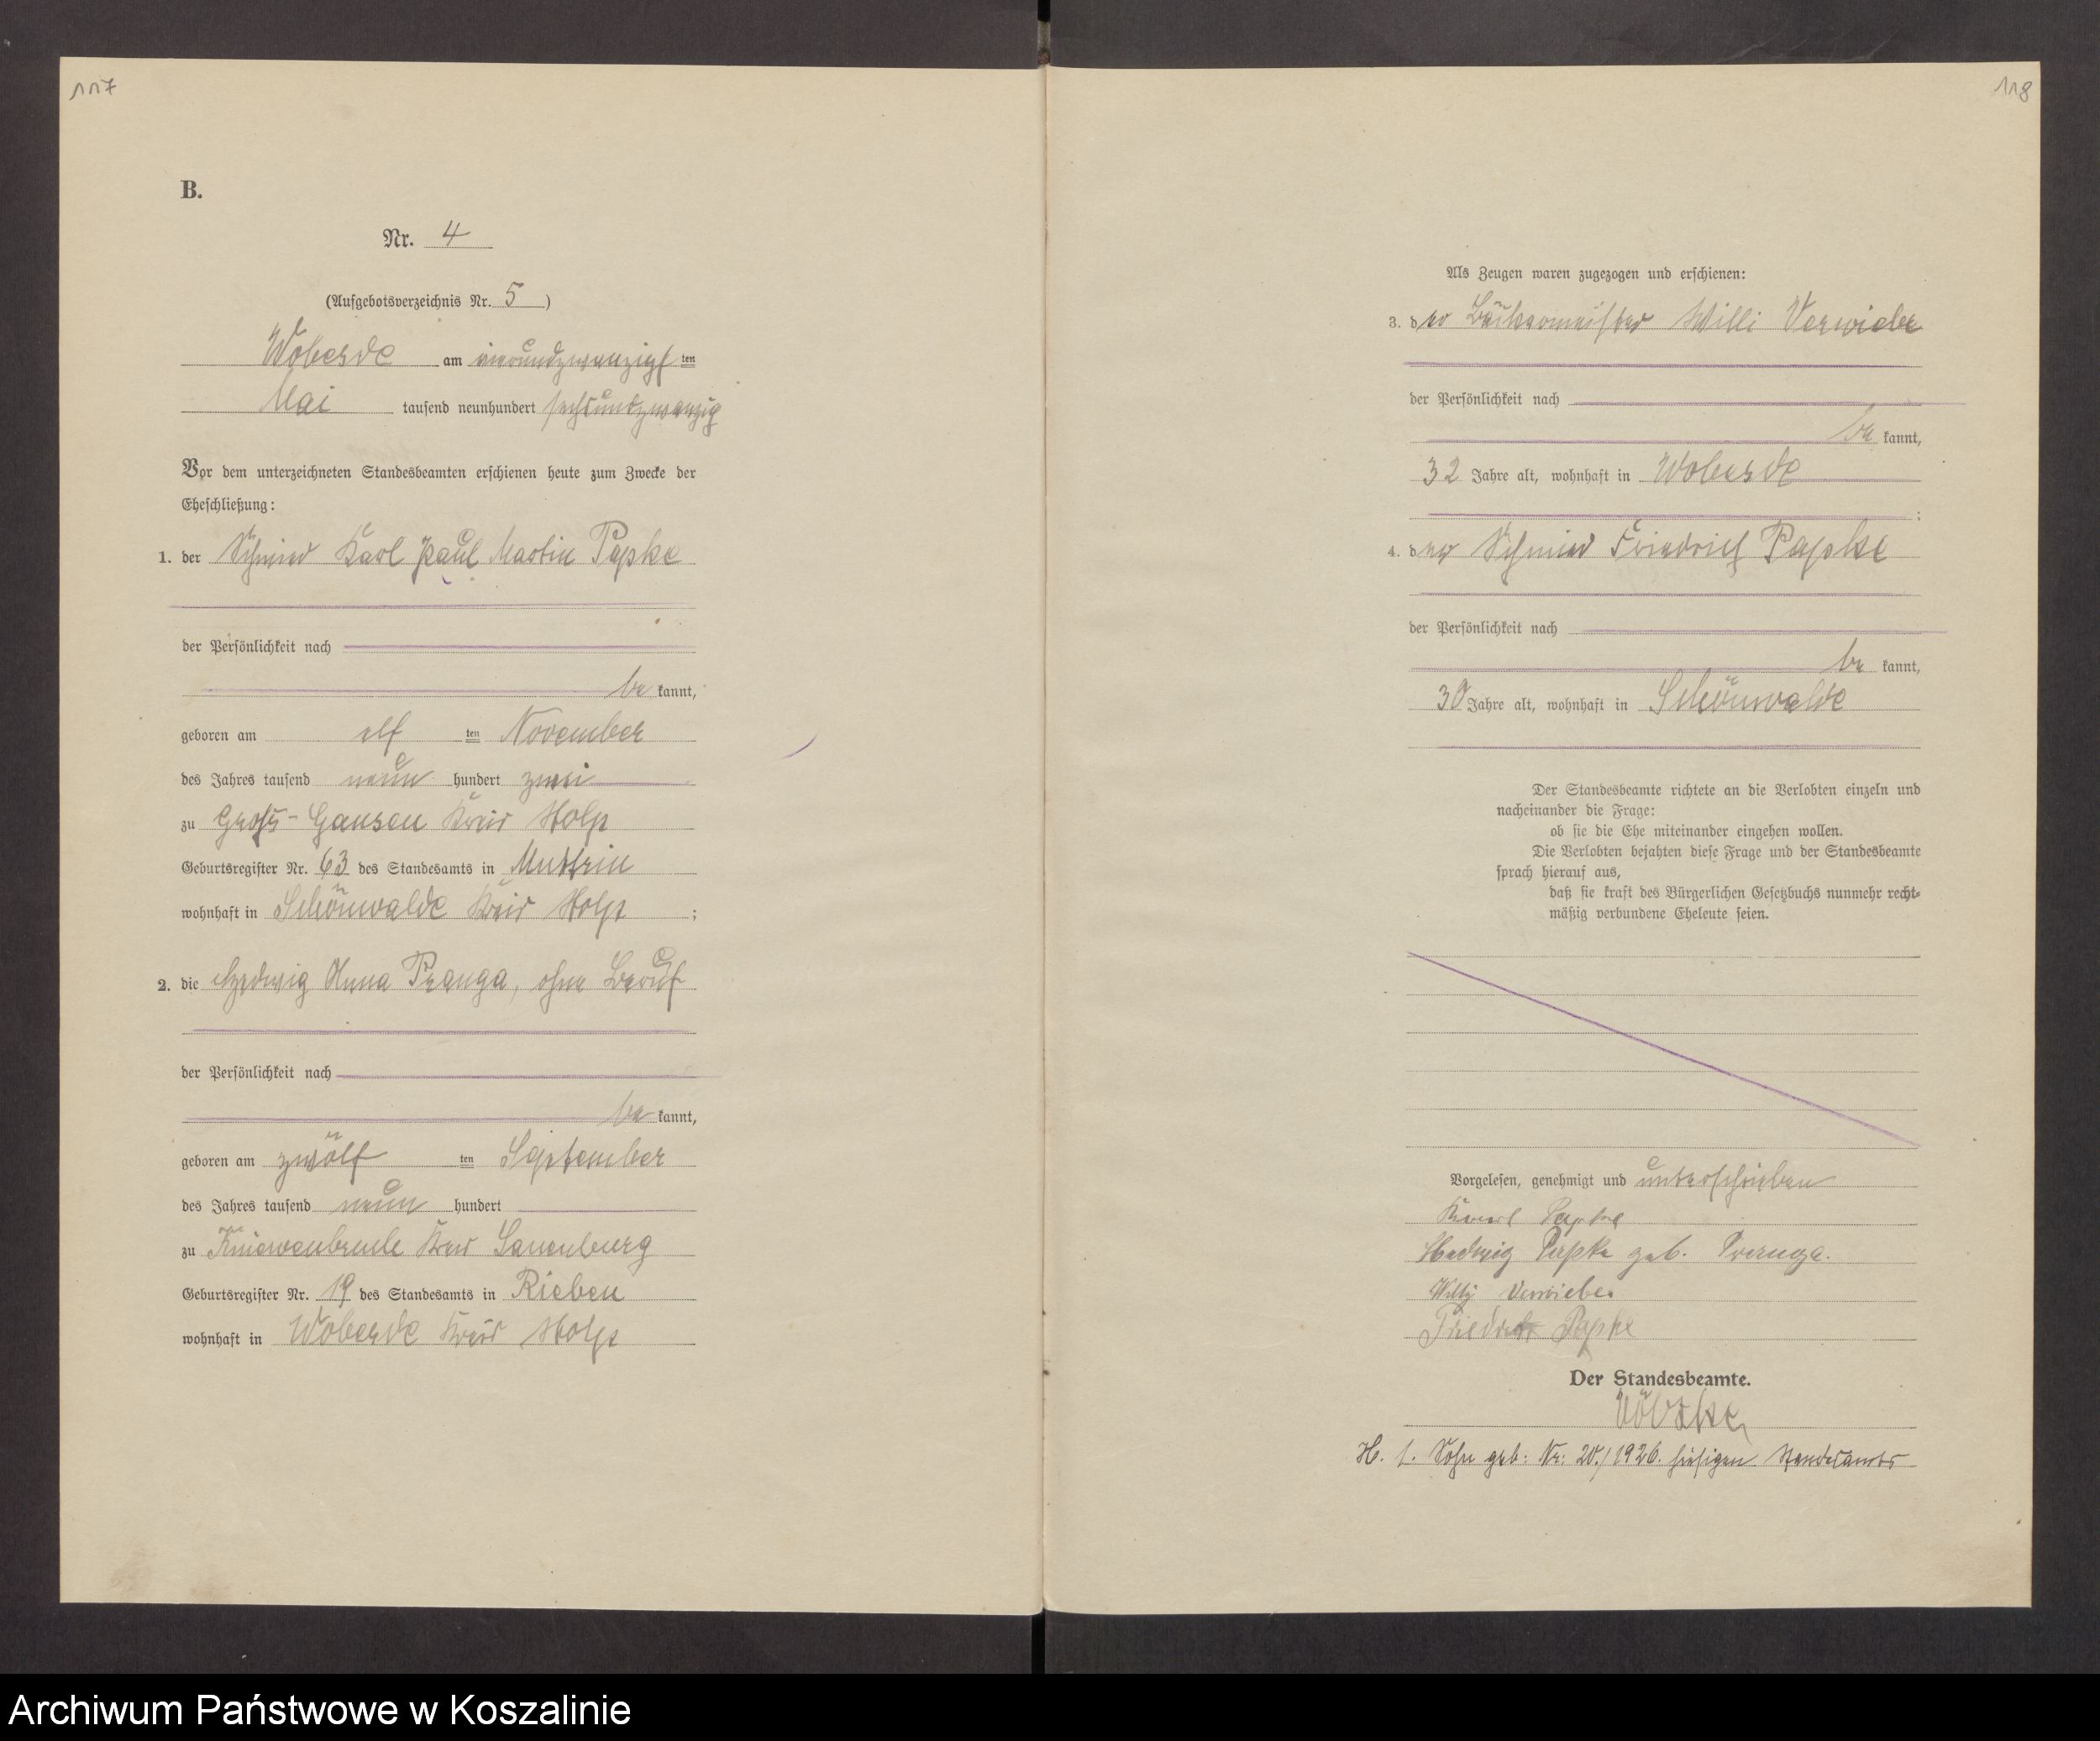 117
B.
Nr. 4
(Aufgebotsverzeichnis Nr. 5)
Woberde am vierundzwanzigsten
Mai tausend neunhundert sechsundzwanzig
Vor dem unterzeichneten Standesbeamten erschienen heute zum Zwecke der
Eheschließung:
1. der Schmied Karl Paul Martin Papke
der Persönlichkeit nach
be kannt,
geboren am elf ten November
des Jahres tausend neun hundert zwei
zu Gross-Gansen Kreis Stolp
Geburtsregister Nr. 63 des Standesamts in Muttrin
wohnhaft in Schönwalde Kreis Stolp ;
2. die Hedwig Anna Pranga, ohne Beruf
der Persönlichkeit nach
be kannt,
geboren am zwölf ten September
des Jahres tausend neun hundert
zu Kniewenbruch Kreis Lauenburg
Geburtsregister Nr. 19 des Standesamts in Rieben
wohnhaft in Woberde Kreis Stolp
118
Als Zeugen waren zugezogen und erschienen:
3. der Bäckermeister Willi Verwiebe
der Persönlichkeit nach
be kannt,
32 Jahre alt, wohnhaft in Woberde
;
4. der Schmied Friedrich Papke
der Persönlichkeit nach
be kannt,
30 Jahre alt, wohnhaft in Schönwalde
Der Standesbeamte richtete an die Verlobten einzeln und
nacheinander die Frage:
ob sie die Ehe miteinander eingehen wollen.
Die Verlobten bejahten diese Frage und der Standesbeamte
sprach hierauf aus,
daß sie kraft des Bürgerlichen Gesetzbuchs nunmehr recht-
mäßig verbundene Eheleute seien.
Vorgelesen, genehmigt und unterschrieben
Karl Papke
Hedwig Papke geb. Pranga.
Willy Verwiebe
Friedrich Papke
Der Standesbeamte.
H. 1. Sohn geb: Nr: 20./1926. hiesigen Standesamts
Archiwum Państwowe w Koszalinie